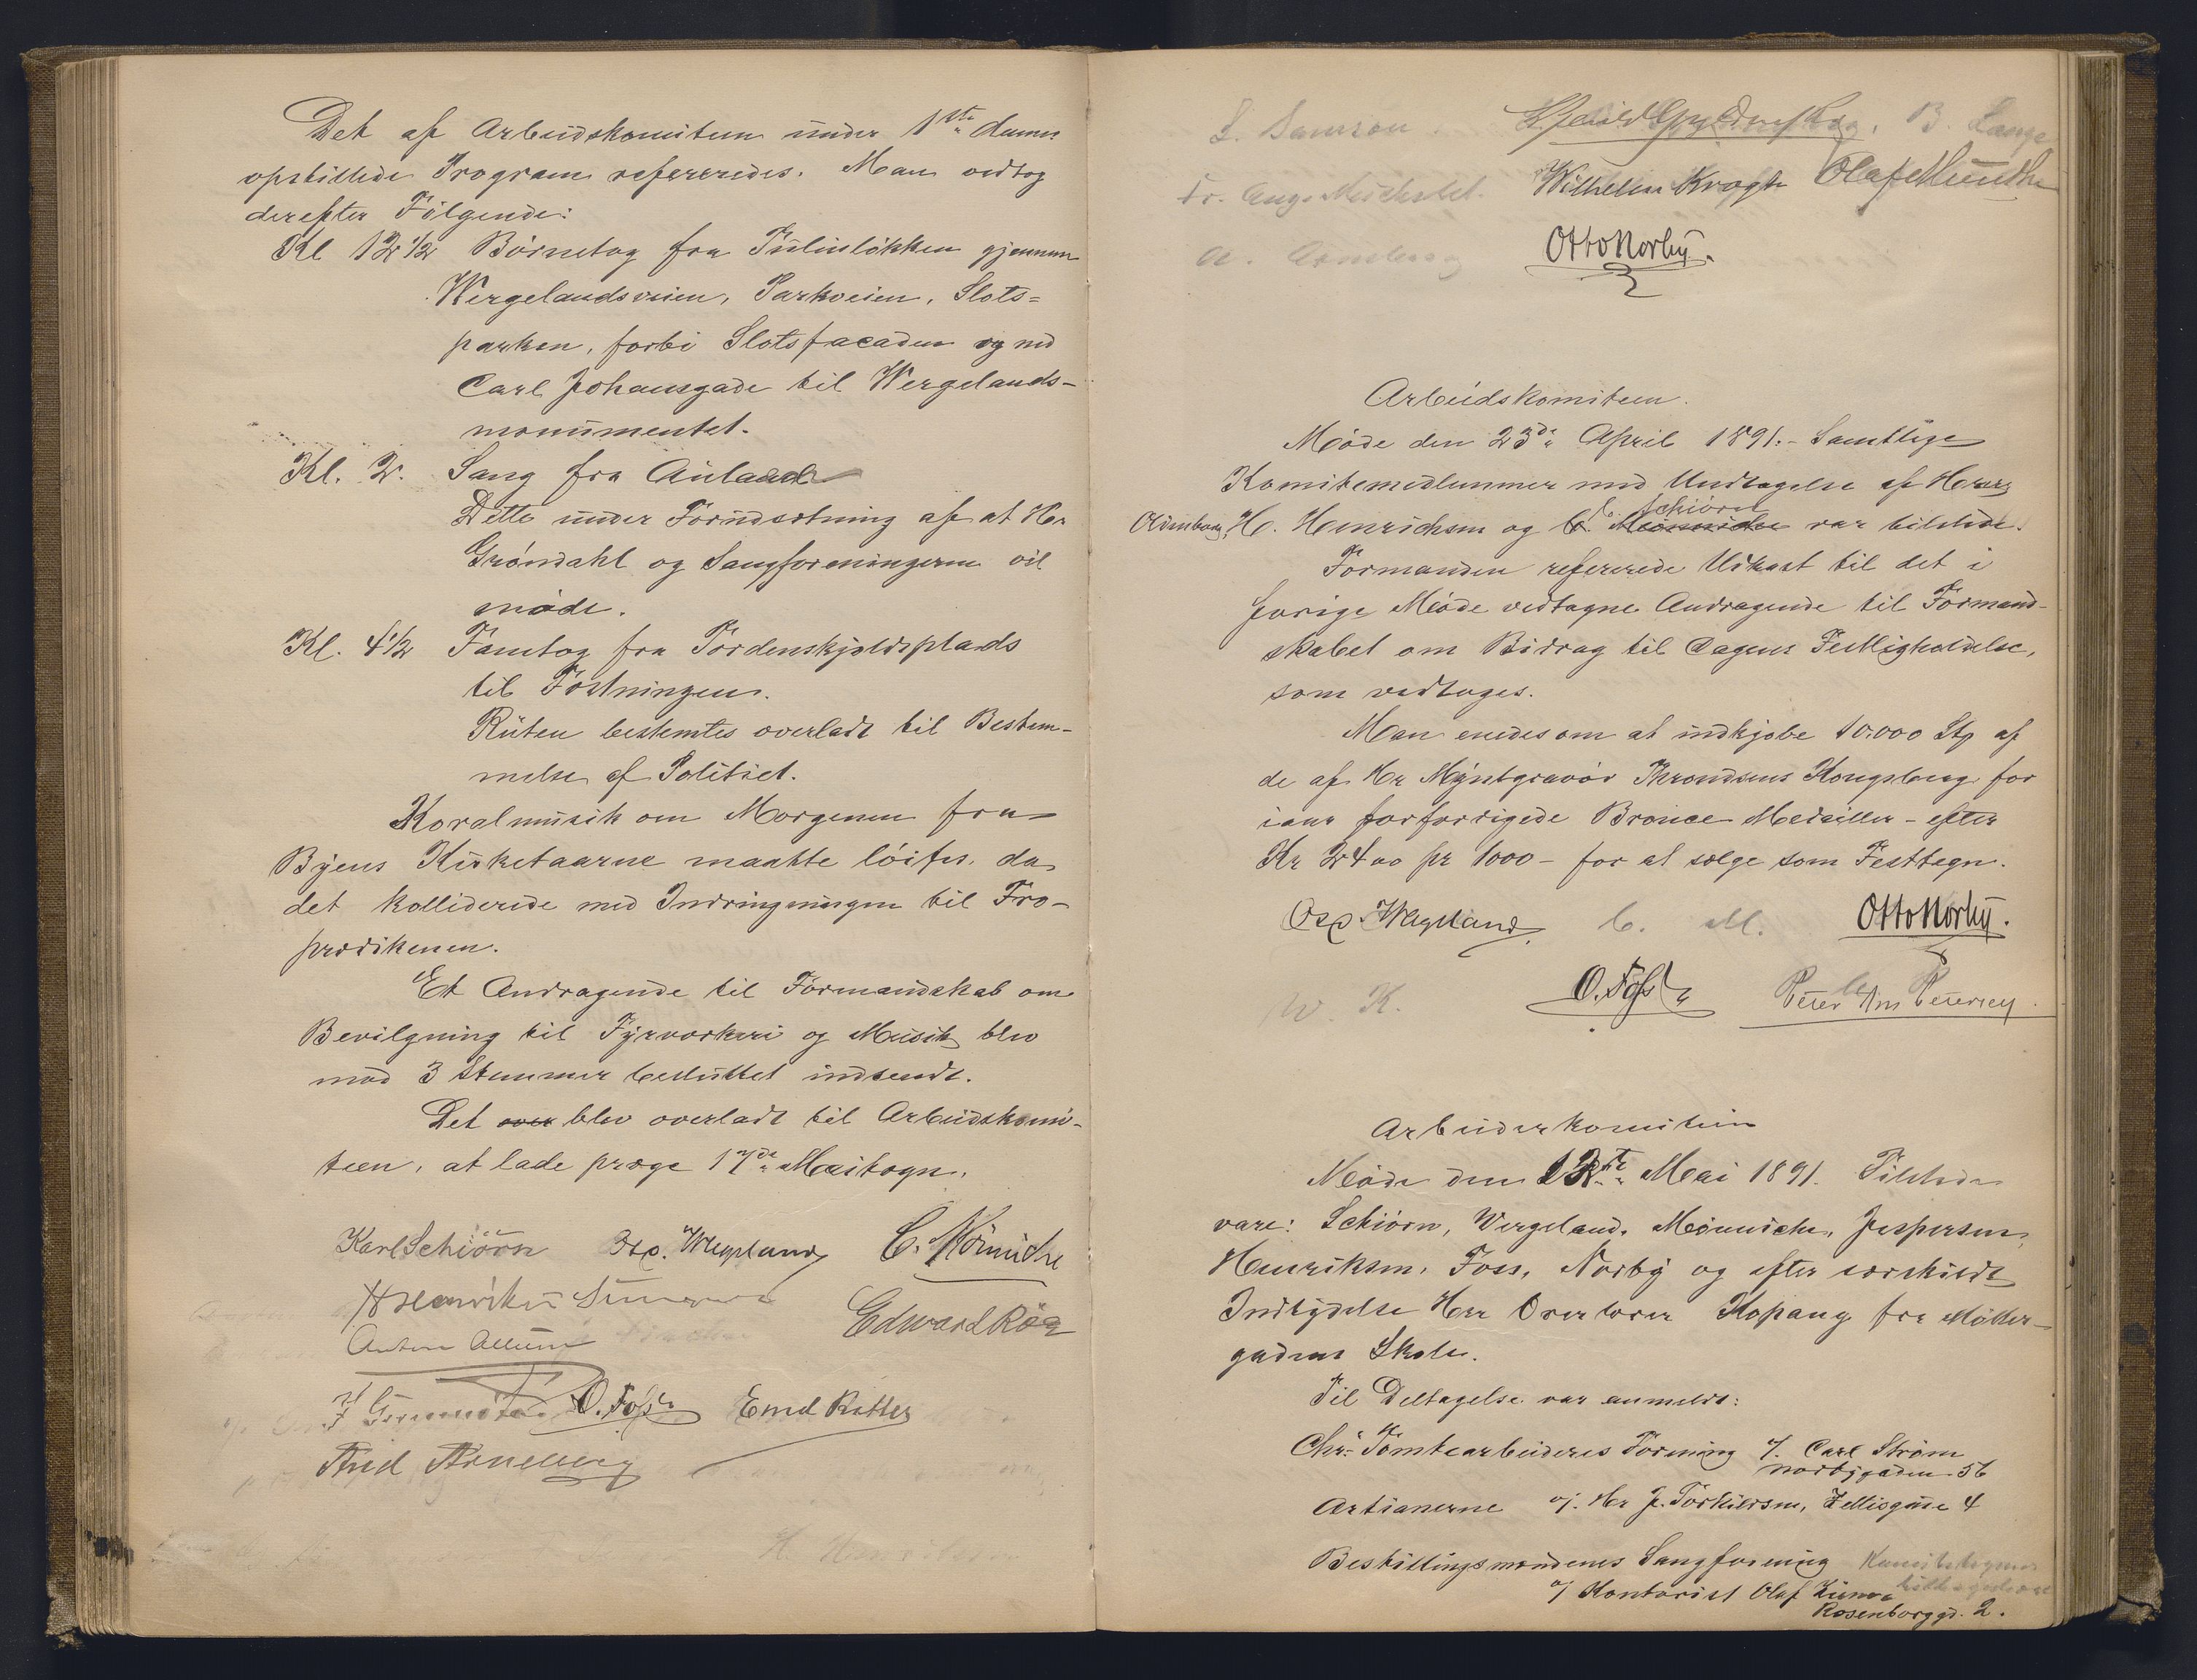 Det af Arbeidskomiteen under 1ste dennes
opstillede Program refereredes. Man vedtog
derefter Følgende:
Kl 12 1/2 Børnetog fra Tulinløkken gjennem
Wergelandsveien, Parkveien, Slots=
parken, forbi Slotsfacaden og ned
Carl Johansgade til Wergelands-
monumentet.
Kl. 2. Sang fra Aulaen
Dette under Forudsætning af at Hr
Grøndahl og Sangforeningerne vil
møde.
Kl. 4 1/2 Fanetog fra Tordenskjoldsplads
til Fæstningen.
Ruten bestemtes overladt til Bestem-
melse af Politiet.
Koralmusik om Morgenen fra
Byens Kirketaarne maatte løifes, da
det kolliderede med Indringningen til Fro-
prædikenen.
Et Andragende til Formandskab om
Bevilgning til Fyrværkeri og Musik blev
mod 3 Stemmer besluttet indsendt.
Det over blev overladt til Arbeidskomi-
teen, at lade præge 17de Maitegn.
Karl Schiørn Osc. Wergeland C. Mønniche
H Henriksen
Anton Allum Edward Röer
O. Foss Emil Ritter
Arneberg
H. Henriksen
S. Samson. B. Lange
Fr. Aug. Michelet. Wilhelm Kragh Olaf Munthe
A. Arneberg Otto Norby.
Arbeidskomiteen.
Møde den 23de April 1891. - Samtlige
Komitemedlemmer med Undtagelse af Herrer
Oldenborg, H. Henrichsen og C. Schiørn C. Mønniche var tilstede.
Formanden refererede Udkast til det i
forrige Møde vedtagne Andragende til Formand-
skabet om Bidrag til Dagens Festligholdelse,
som vedtoges.
Man enedes om at indkjøbe 10.000 Stk af
de af Hr Myntgravør Throndsens Kongsberg for
iaar forfærdigede Bronce Medailler - efter
Kr 2400 pr 1000 - for at sælge som Festtegn.
Osc. Wergeland C. M. Otto Norby.
W. K. O. Foss Peter Petersen
Arbeiderkomiteen
Møde den 12te Mai 1891. Tilstede
vare: Schiørn, Wergeland, Mønniche, Jespersen,
Henriksen, Foss, Norby og efter særskildt
Indbydelse Herr Overlærer Kopang fra Møller-
gadens Skole.
Til Deltagelse var anmeldt:
Chr. Tomtearbeideres Forening v/ Carl Strøm
Norbygaden 56
Artianerne v/. Hr J. Torkildsen, Zettisgade 4
Bestillingsmændenes Sangforening
v/ Kontorist Olaf
Rosenborggd. 2.